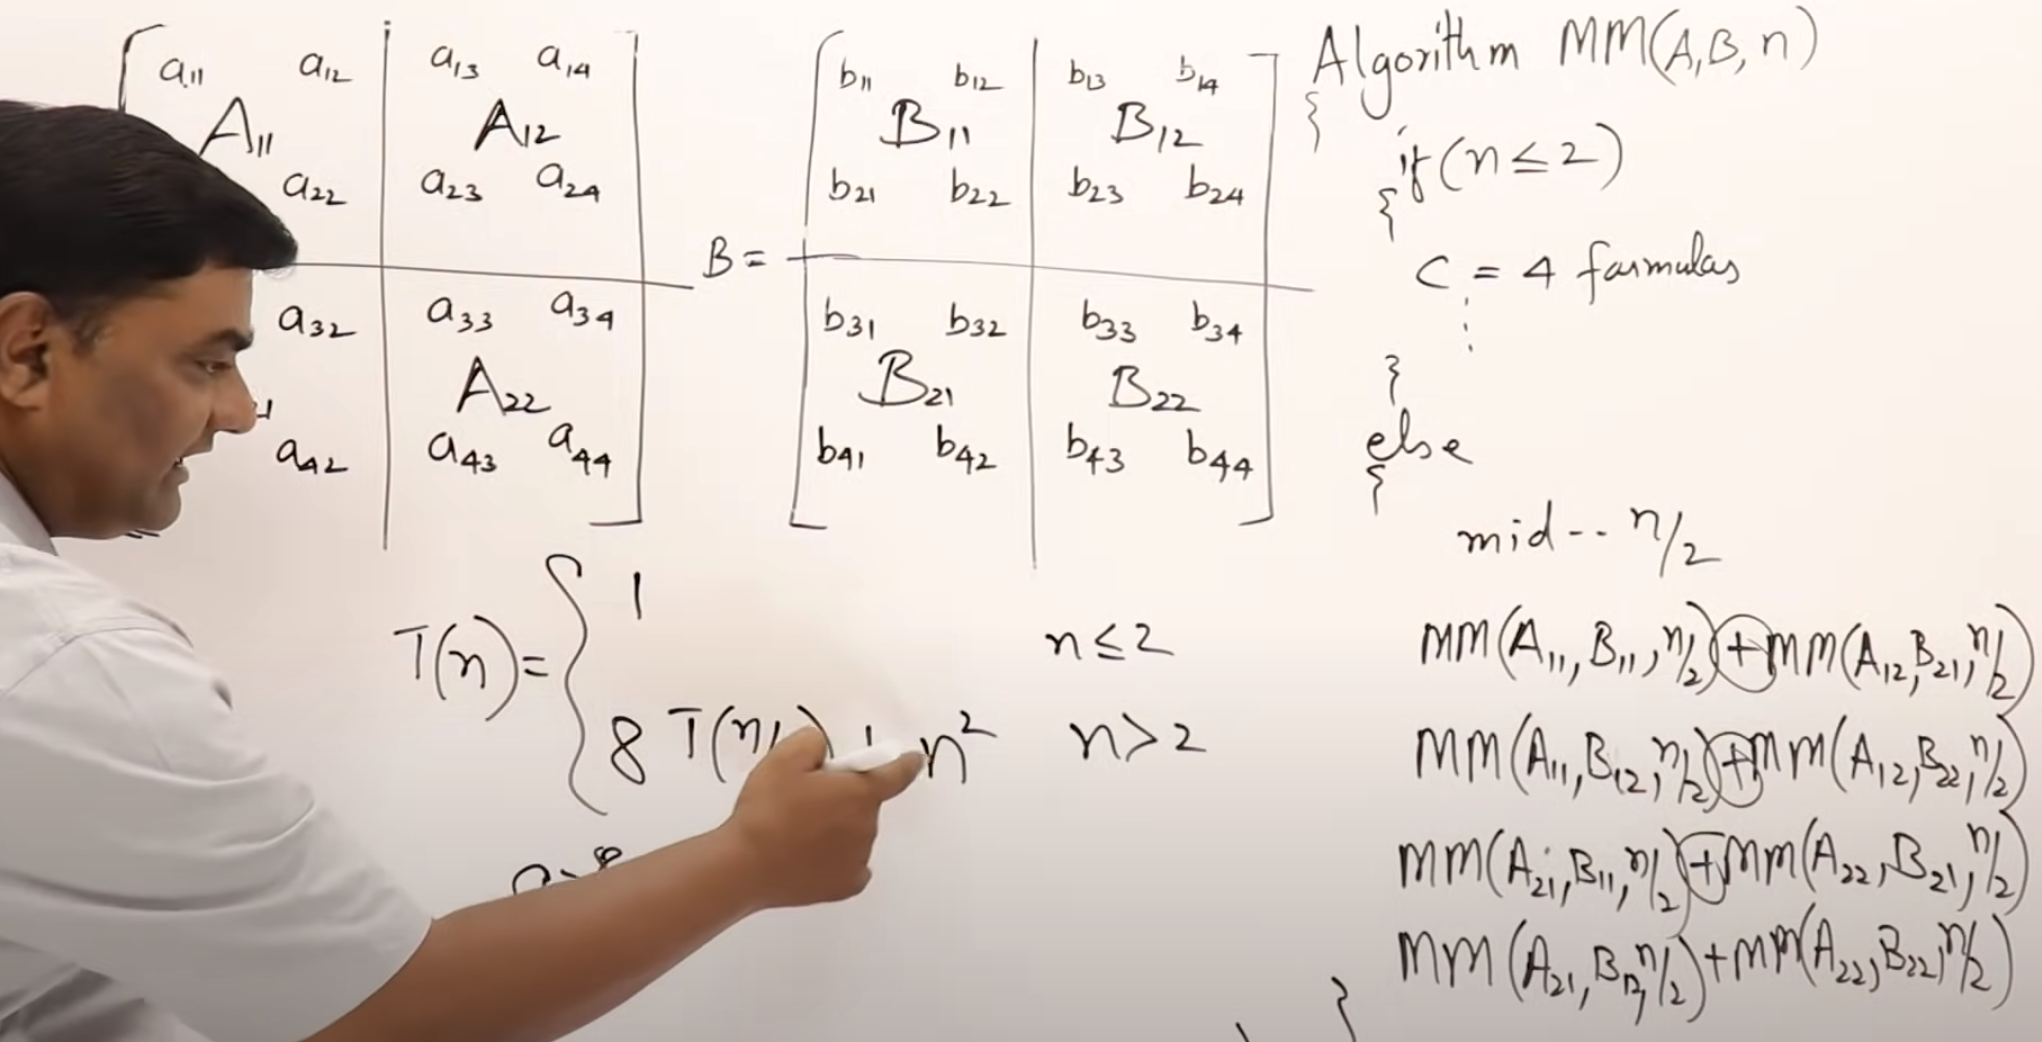 a11 a12 a13 a14
A11 A12
a22 a23 a24
a32 a33 a34
A22
a42 a43 a44
B =
b11 b12 b13 b14
B11 B12
b21 b22 b23 b24
b31 b32 b33 b34
B21 B22
b41 b42 b43 b44
T(n) = { 1 n ≤ 2
8 T(n/ ) + n² n > 2
Algorithm MM(A, B, n)
{
if (n ≤ 2)
{
C = 4 formulas
⋮
}
else
{
mid -- n/2
MM(A11, B11, n/2) + MM(A12, B21, n/2)
MM(A11, B12, n/2) + MM(A12, B22, n/2)
MM(A21, B11, n/2) + MM(A22, B21, n/2)
MM(A21, B12, n/2) + MM(A22, B22, n/2)
}